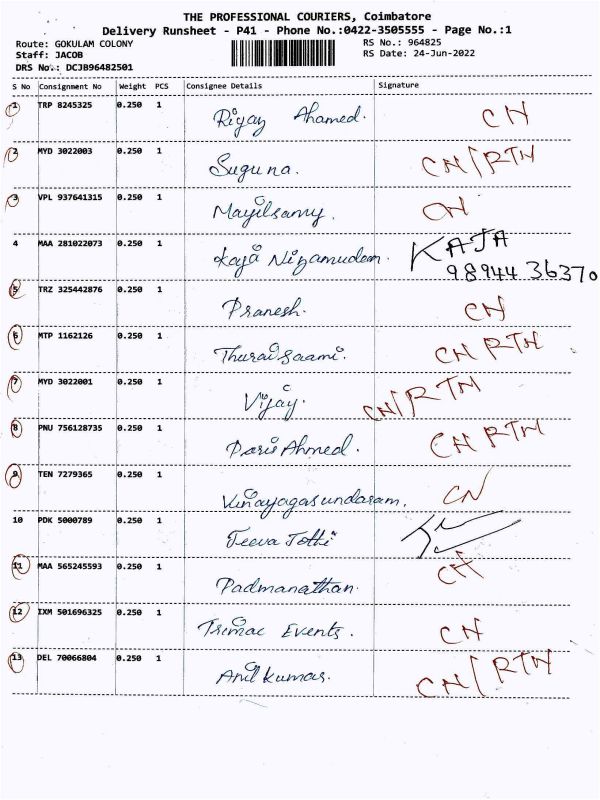 THE PROFESSIONAL COURIERS, Coimbatore
Delivery Runsheet - P41 - Phone No.:0422-3505555 - Page No.:1
Route: GOKULAM COLONY RS No.: 964825
Staff: JACOB RS Date: 24-Jun-2022
DRS No.: DCJB96482501
S No Consignment No Weight PCS Consignee Details Signature
1 TRP 8245325 0.250 1 Riyaz Ahamed. CN
2 MYD 3022003 0.250 1 Suguna. CN/RTN
3 VPL 937641315 0.250 1 Mayilsamy. CN
4 MAA 281022073 0.250 1 Kaja Nizamudeen. KAJA
98944 36370
5 TRZ 325442876 0.250 1 Pranesh. CN
6 MTP 1162126 0.250 1 Thuraisaami. CN RTN
7 MYD 3022001 0.250 1 Vijay. CN/RTN
8 PNU 756128735 0.250 1 Ahmed. CN RTN
9 TEN 7279365 0.250 1 Vinayagasundaram. CN
10 PDK 5000789 0.250 1 Jeeva Jothi
11 MAA 565245593 0.250 1 Padmanathan. CN
12 IXM 501696325 0.250 1 Trimac Events. CN
13 DEL 70066804 0.250 1 Anil Kumar. CN/RTN